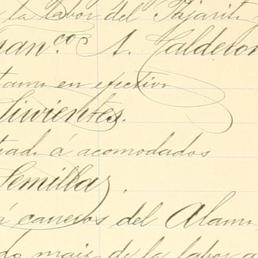 la labor del Pajarit
Fran.co A. Calderon
en efectivo
Sirvientes.
á acomodados
Semillas.
á carreros del Alam
maiz de la labor a